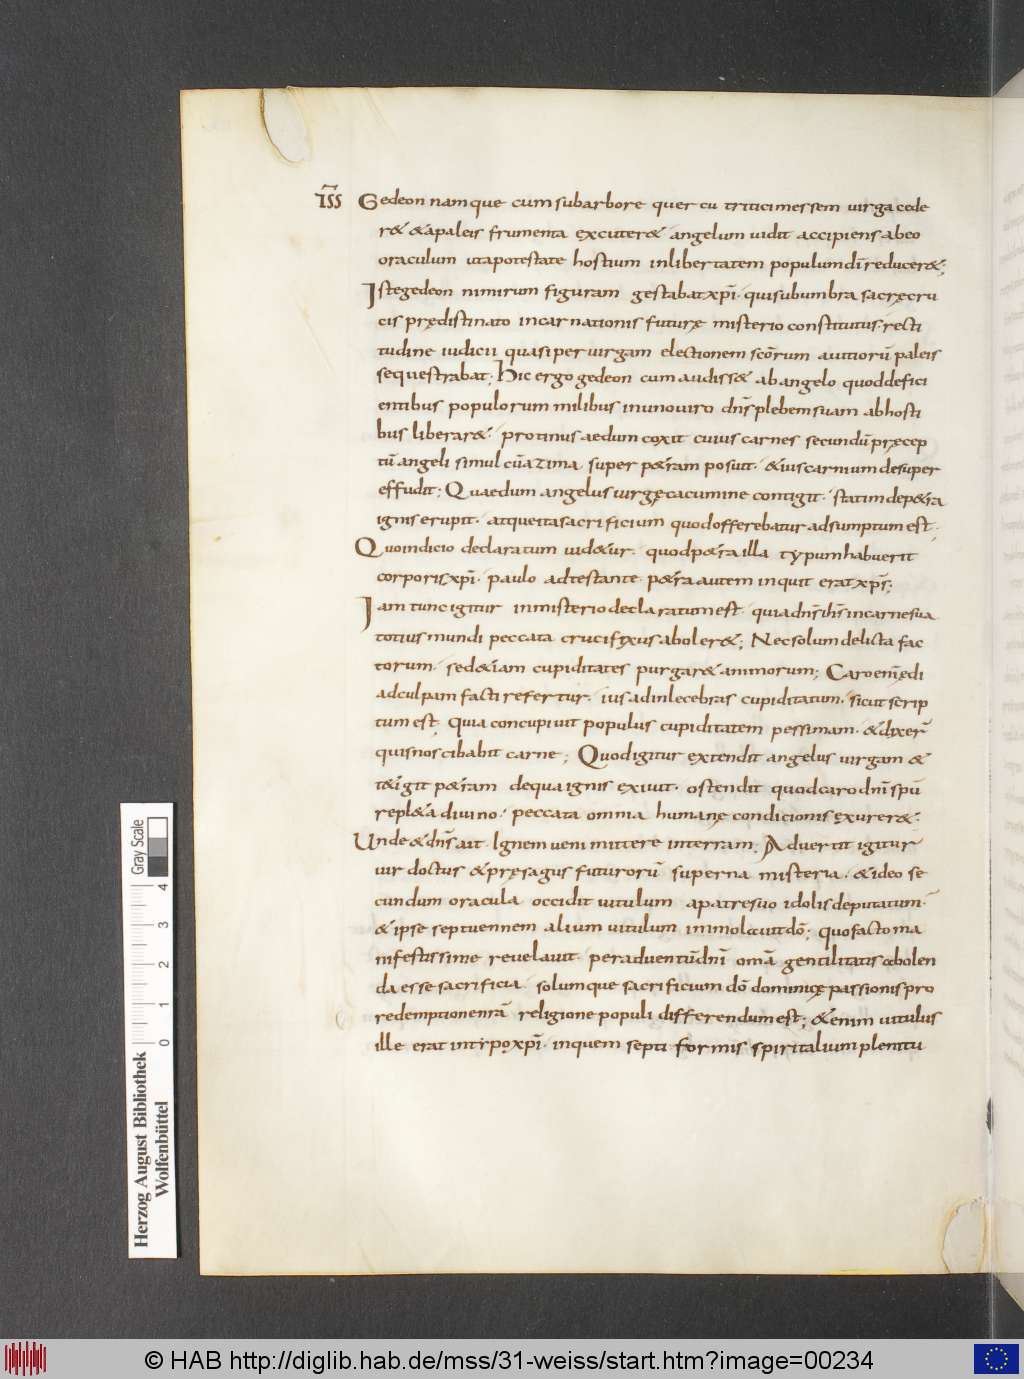 ı̅ss Gedeon namque cum subarbore quercu triticimessem virga cede
r& &apaleis frumenta excuter& angelum vidit accipiens abeo
oraculum utapotestate hostium inlibertatem populumdī reducer&;
Istegedeon nimirum figuram gestabatxp̄i· quisubumbra sacręcru
cis prędistinato incarnationis futurę misterio constitutus· recti
tudine iudicii quasi per virgam electionem sc̄orum avitiorū paleis
sequestrabat; Hic ergo gedeon cum audiss& ab angelo quoddefici
entibus populorum milibus inunoviro dn̄s plebemsuam abhosti
bus liberar&· protinus aedum coxit cuius carnes secundū pręcep
tū angeli simul cūazima super p&ram posuit· &ius carnium desuper
effudit; Quaedum angelus virgęcacumine contigit· statim dep&ra
ignis erupit· atqueitasacrificium quodofferebatur adsumptum est·
Quoindicio declaratum vid&ur· quodp&ra illa typumhabuerit
corporisxp̄i· paulo adtestante· p&ra autem inquit erat xp̄s;
Iam tunc igitur inmisterio declaratum est· quiadn̄s ih̄s incarnesua
totius mundi peccata crucifixus aboler&; Nec solum delicta fac
torum· sed&iam cupiditates purgar& animorum; Caro enī hędi
adculpam facti refertur· ius adinlecebras cupiditatum· sicut scrip
tum est· quia concupivit populus cupiditatem pessimam· &dixer̄
quisnos cibabit carne; Quodigitur extendit angelus virgam &
t&igit p&ram dequaignis exivit· ostendit quodcaro dn̄i spū
repl&a divino· peccata omnia humanę condicionis exurer&·
Unde &dn̄s ait· Ignem veni mittere interram; Advertit igitur
vir doctus &pręsagus futurorū superna misteria· &ideo se
cundum oracula occidit vitulum apatresuo idolis deputatum·
&ipse septuennem alium vitulum immolavitdō; quofactoma
nifestissime revelavit· peradventūdn̄i om̄a gentilitatis abolen
da esse sacrificia· solumque sacrificium dō dominicę passionis pro
redemptionenr̄a religione populi differendum est; &enim vitulus
ille erat intypoxp̄i· inquem septiformis spiritalium plenitu
Herzog August Bibliothek
Wolfenbüttel
0 1 2 3 4
Gray Scale
© HAB http://diglib.hab.de/mss/31-weiss/start.htm?image=00234